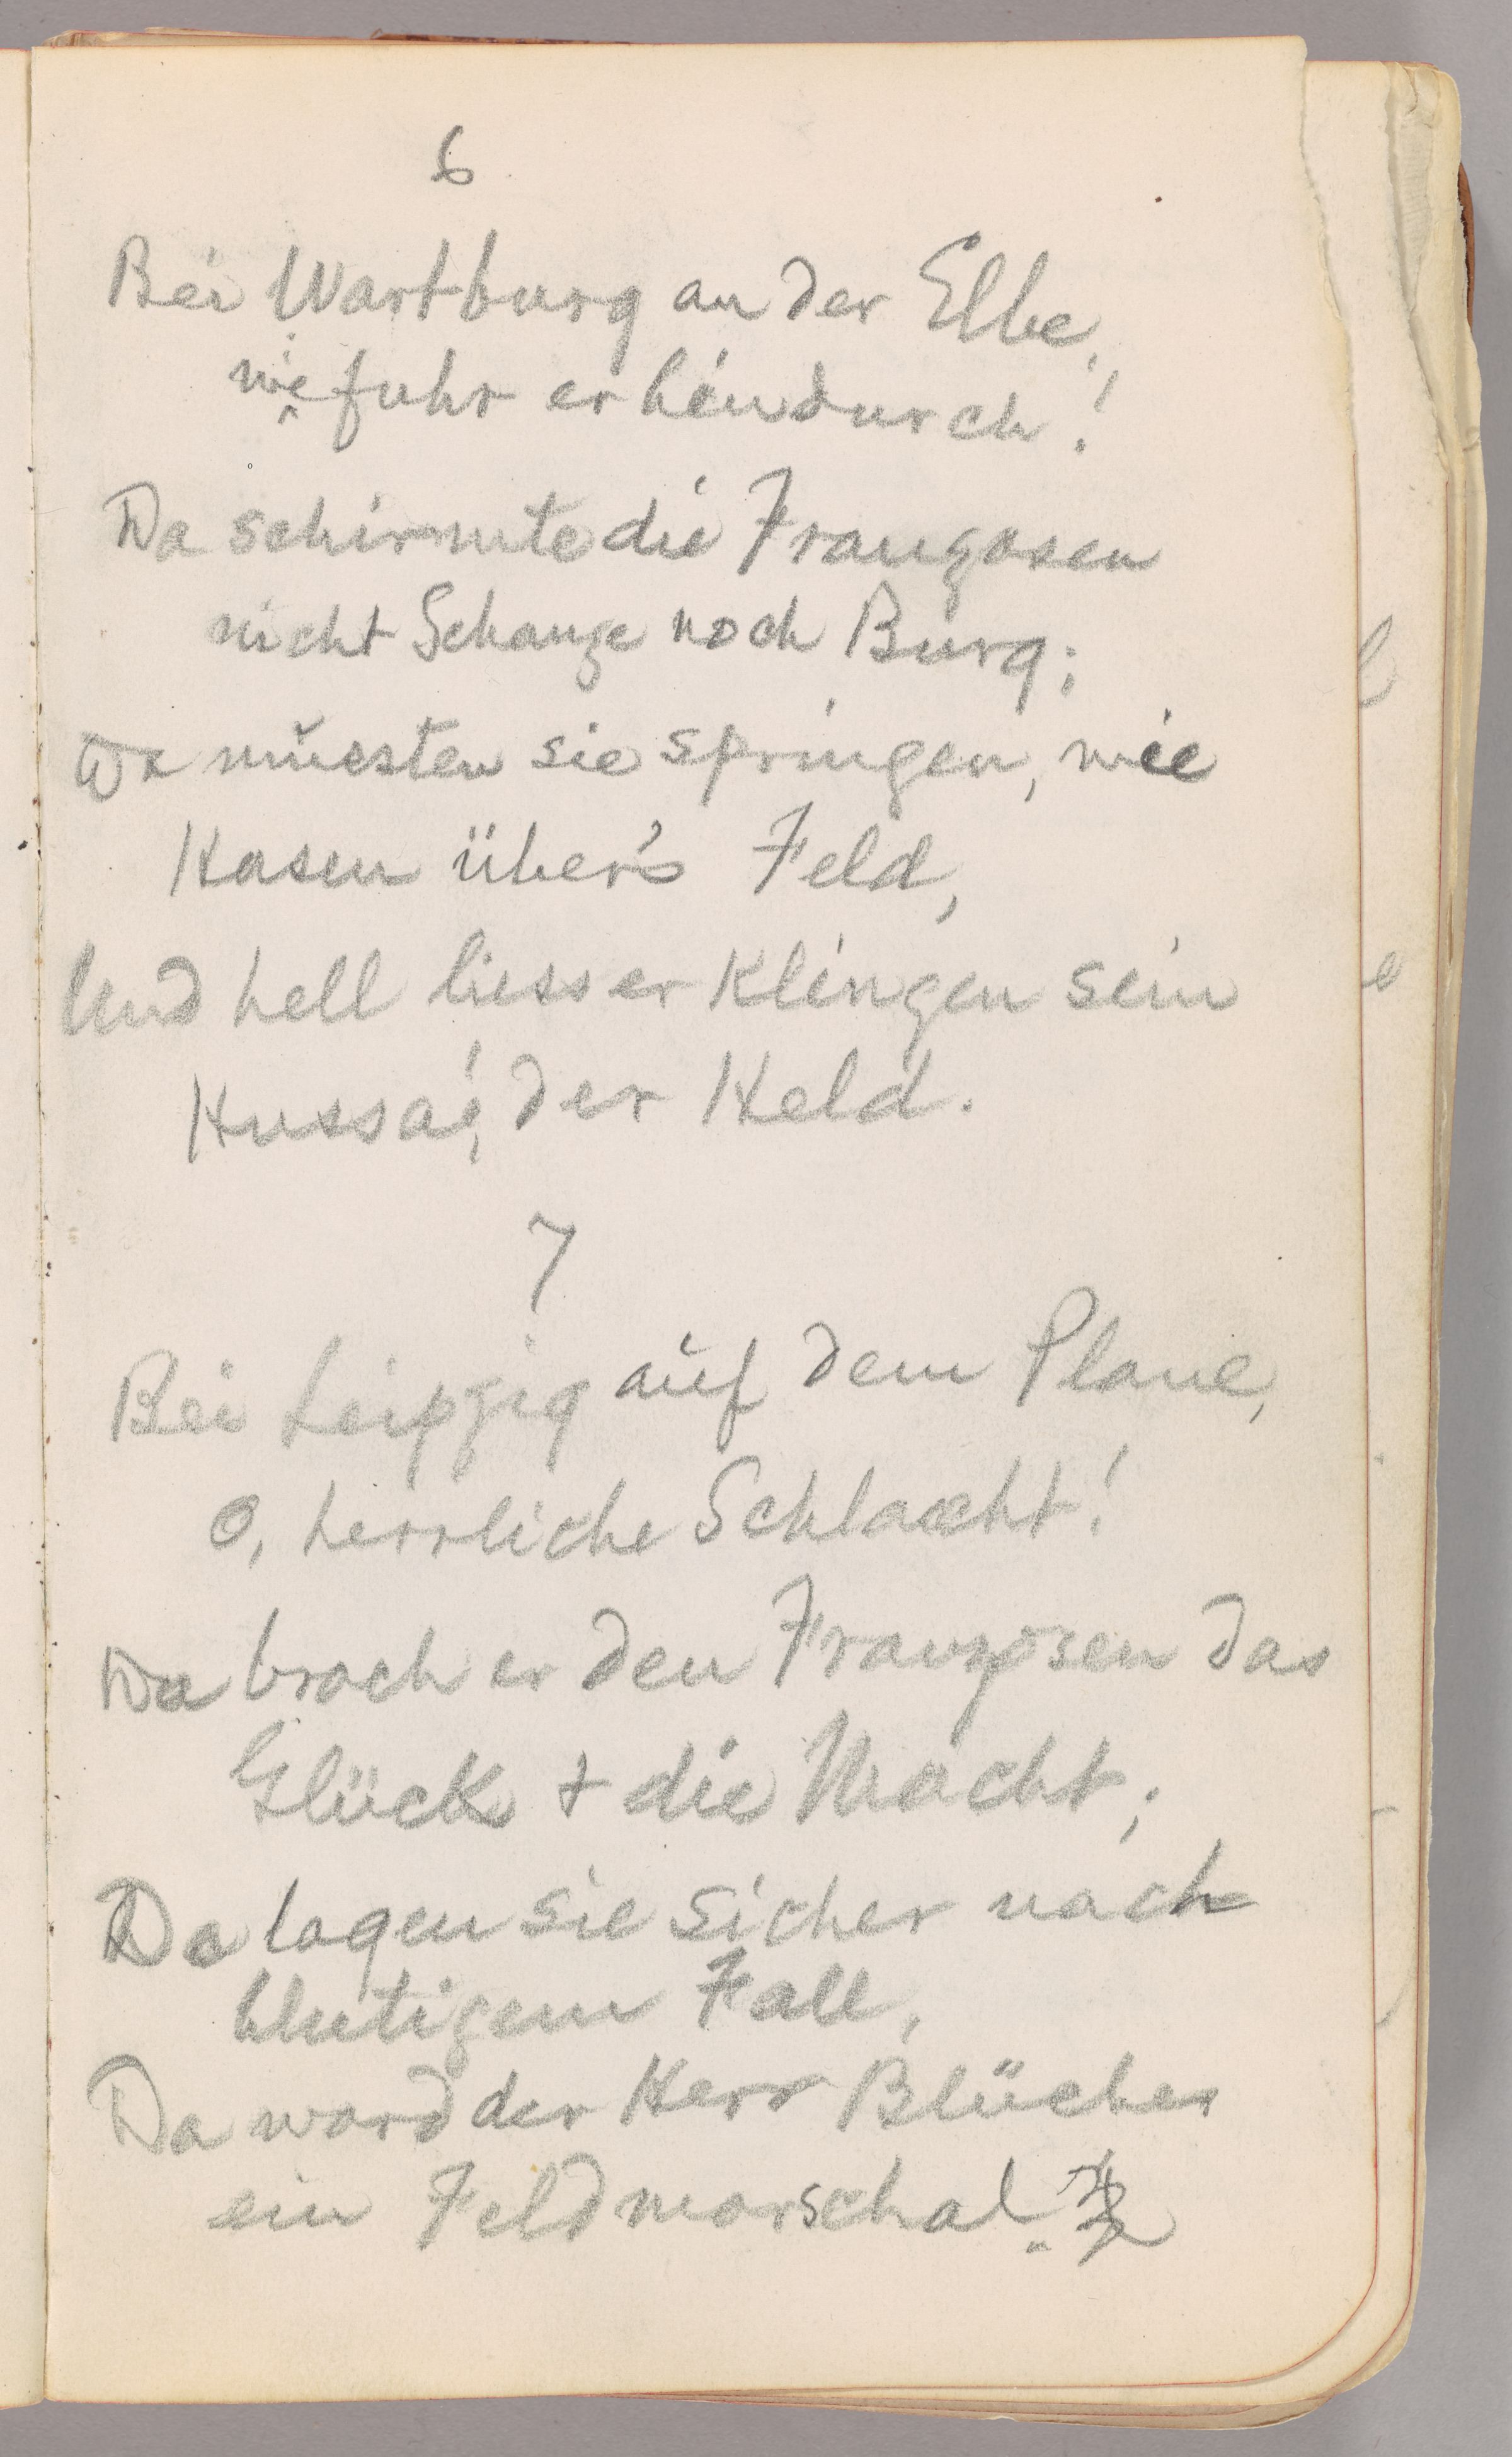 6
Bei Wartburg an der Elbe,
wie fuhr er hindurch!
Da schirmte die Franzosen
nicht Schanze noch Burg;
Da müssten sie springen, wie
Hasen über's Feld,
Und hell liess er klingen sein
Hussa!, der Held.
7
Bei Leipzig auf dem Plane,
O, herrliche Schlacht!
Da brach er den Franzosen das
Glück + die Macht;
Da lagen sie sicher nach
blutigem Fall,
Da ward der Herr Blücher
ein Feldmarschal.